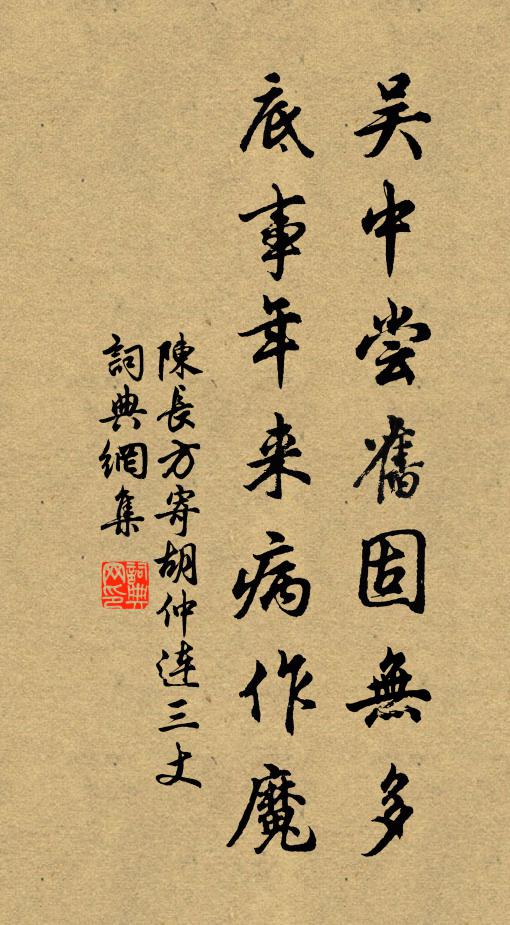 吳中尝舊固無多
底事年来病作魔
陳長方寄胡仲連三丈
詞典網集
詞典網印